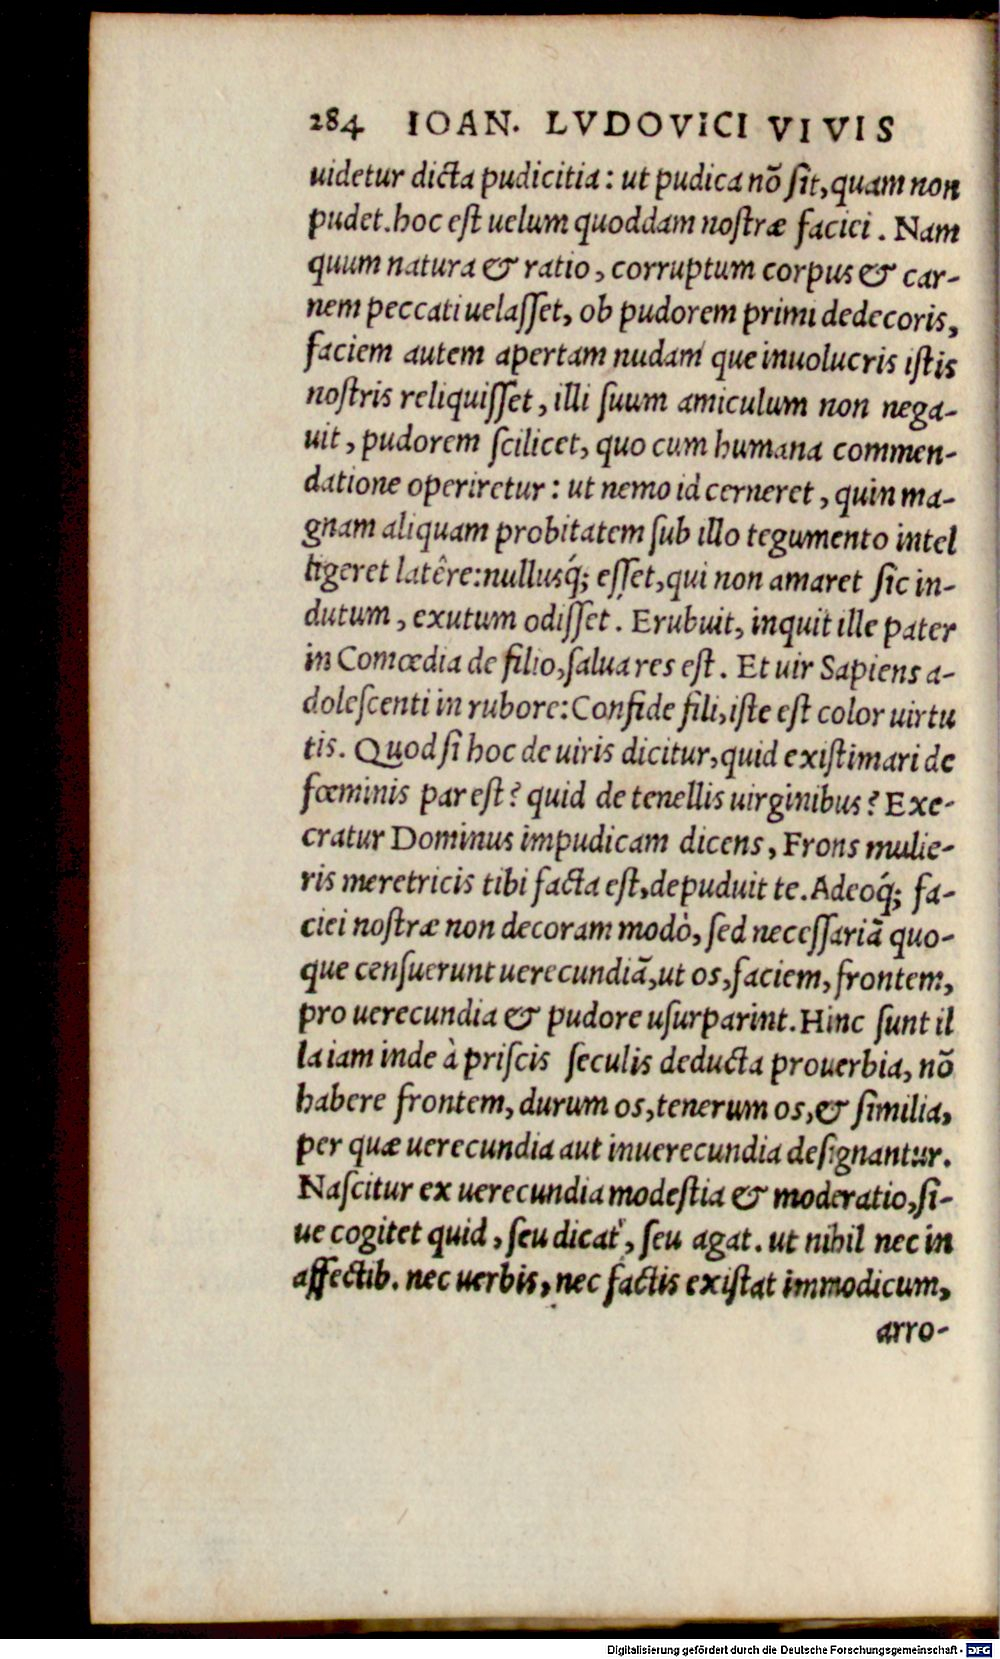 284 IOAN. LVDOVICI VIVIS
uidetur dicta pudicitia: ut pudica nõ sit, quam non
pudet. hoc est uelum quoddam nostræ faciei. Nam
quum natura & ratio, corruptum corpus & car-
nem peccati uelasset, ob pudorem primi dedecoris,
faciem autem apertam nudam que inuolucris istis
nostris reliquisset, illi suum amiculum non nega-
uit, pudorem scilicet, quo cum humana commen-
datione operiretur: ut nemo id cerneret, quin ma-
gnam aliquam probitatem sub illo tegumento intel
ligeret latêre: nullusq́; esset, qui non amaret sic in-
dutum, exutum odisset. Erubuit, inquit ille pater
in Comœdia de filio, salua res est. Et uir Sapiens a-
dolescenti in rubore: Confide fili, iste est color uirtu
tis. Quod si hoc de uiris dicitur, quid existimari de
fœminis par est? quid de tenellis uirginibus? Exe-
cratur Dominus impudicam dicens, Frons mulie-
ris meretricis tibi facta est, depuduit te. Adeoq́; fa-
ciei nostræ non decoram modò, sed necessariã quo-
que censuerunt uerecundiã, ut os, faciem, frontem,
pro uerecundia & pudore usurparint. Hinc sunt il
la iam inde à priscis seculis deducta prouerbia, nõ
habere frontem, durum os, tenerum os, & similia,
per quæ uerecundia aut inuerecundia designantur.
Nascitur ex uerecundia modestia & moderatio, si-
ue cogitet quid, seu dicat', seu agat. ut nihil nec in
affectib. nec uerbis, nec factis existat immodicum,
arro-
Digitalisierung gefördert durch die Deutsche Forschungsgemeinschaft - DFG